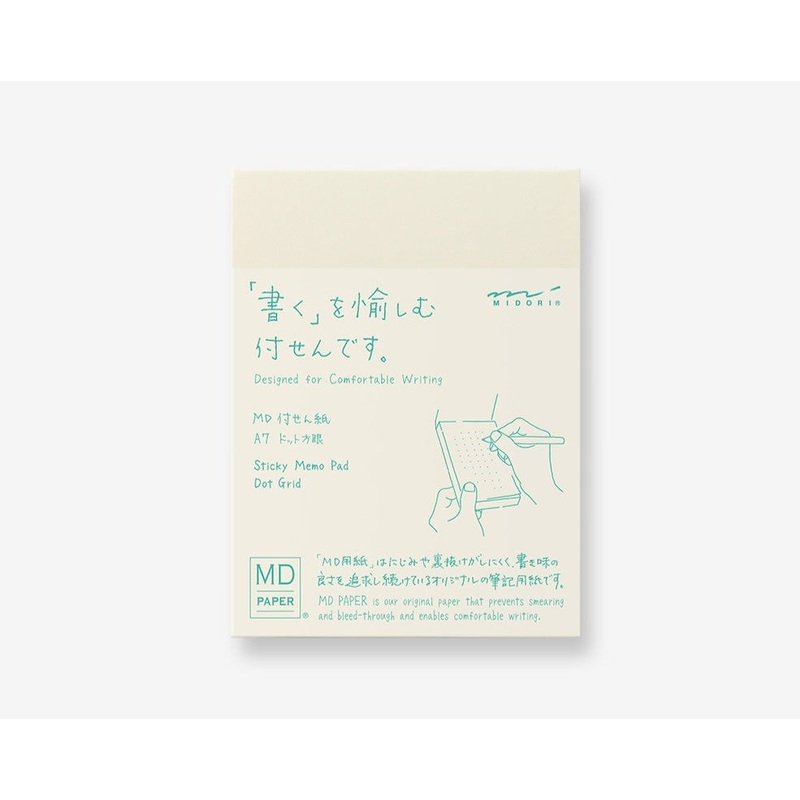 「書く」を愉しむ
付せんです。
MIDORI®
Designed for Comfortable Writing
MD 付せん紙
A7 ドット方眼
Sticky Memo Pad
Dot Grid
MD
PAPER
®
「MD用紙」はにじみや裏抜けがしにくく、書き味の
良さを追求し続けているオリジナルの筆記用紙です。
MD PAPER is our original paper that prevents smearing
and bleed-through and enables comfortable writing.